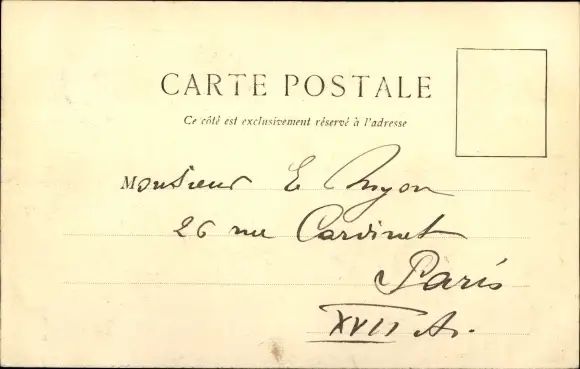 CARTE POSTALE
Ce côté est exclusivement réservé à l'adresse
Monsieur E Nyon
26 rue Cardinet
Paris
XVII Ar.